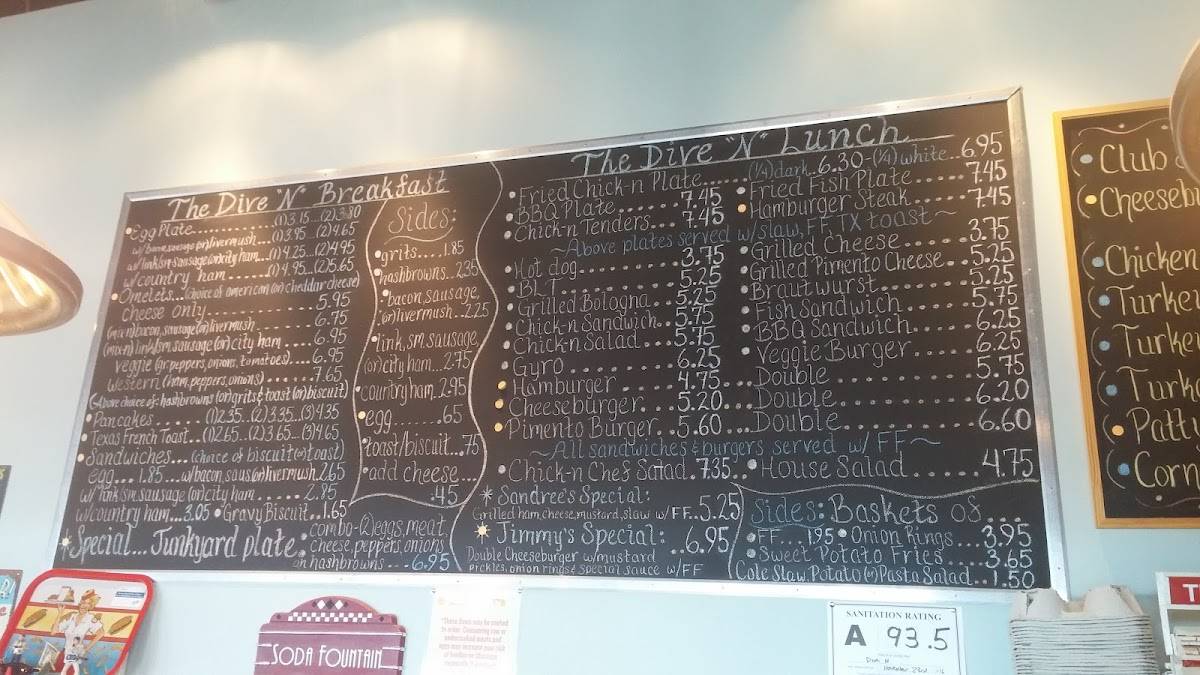 The Dive "N" Breakfast
•egg Plate.......(1)3.15...(2)3.80
w/bacon,sausage(or)livermush...(1)3.95...(2)4.65
w/link(sm.sausage(or)city ham....(1)4.25...(2)4.95
w/country ham.....(1)4.95..(2)5.65
•Omelets...(choice of american(or)cheddar cheese)
cheese only..........5.95
(mix-n)bacon,sausage(or)livermush.......6.75
(mix-n)link(sm.sausage(or)city ham....6.95
veggie(gr.peppers,onions,tomatoes)....6.95
western(ham,peppers,onions).......7.65
(Above choice of: hashbrowns(or)grits & toast(or)biscuit)
•Pancakes.......(1)2.35...(2)3.35...(3)4.35
•Texas French Toast...(1)2.65...(2)3.65...(3)4.65
•Sandwiches...(choice of biscuit(or)toast)
egg....1.85....w/bacon,saus(or)livermush.2.65
w/link(sm.sausage(or)city ham.......2.85
w/country ham....3.05 •Gravy Biscuit..1.65
Special... Junkyard plate:
combo-(2)eggs,meat,
cheese,peppers,onions
on hashbrowns....6.95
Sides:
•grits....1.85
•hashbrowns...2.35
•bacon,sausage,
(or)livermush...2.25
•link,sm.sausage,
(or)city ham...2.75
•country ham..2.95
•egg.....65
•toast/biscuit..75
•add cheese...
.45
The Dive "N" Lunch
•Fried Chick-n Plate......(1/4)dark..6.30-(1/4)white..6.95
•BBQ Plate..........7.45
•Chick-n Tenders....7.45
•Fried Fish Plate.....7.45
•Hamburger Steak....7.45
~Above plates served w/slaw, FF, TX toast~
•Hot dog...........3.75
•BLT............5.25
•Grilled Bologna..5.25
•Chick-n Sandwich..5.75
•Chick-n Salad....5.75
•Gyro..........6.25
•Hamburger......4.75...Double..........5.75
•Cheeseburger...5.20...Double..........6.20
•Pimento Burger..5.60...Double..........6.60
•Grilled Cheese.......3.75
•Grilled Pimento Cheese..5.25
•Brautwurst.........5.25
•Fish Sandwich......5.75
•BBQ Sandwich......6.25
•Veggie Burger.......6.25
~All sandwiches & burgers served w/ FF~
•Chick-n Chef Salad.7.35..•House Salad.......4.75
*Sandree's Special:
Grilled ham,cheese,mustard,slaw w/FF..5.25
Jimmy's Special:
Double Cheeseburger w/mustard ..6.95
pickles,onion rings & special sauce w/FF
Sides: Baskets of...
•FF....1.95 •Onion Rings...3.95
•Sweet Potato Fries....3.65
Cole Slaw, Potato(or)Pasta Salad...1.50
Club
Cheeseb
Chicken
Turke
Turke
Turke
Patty
Corn
SODA FOUNTAIN
SANITATION RATING
A 93.5